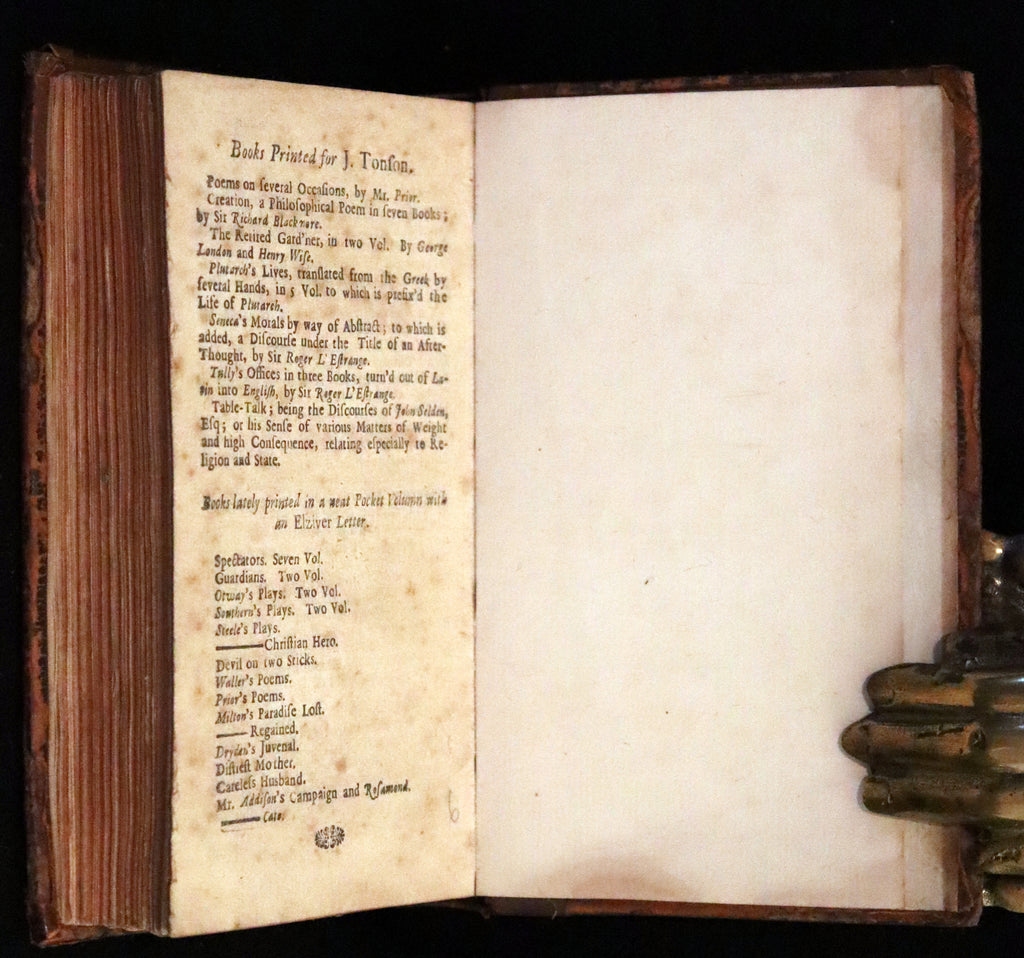 Books Printed for J. Tonſon.
Poems on ſeveral Occaſions, by Mr. Prior.
Creation, a Philoſophical Poem in ſeven Books;
by Sir Richard Blackmore.
The Retired Gard'ner, in two Vol. By George
London and Henry Wiſe.
Plutarch's Lives, tranſlated from the Greek by
ſeveral Hands, in 5 Vol. to which is prefix'd the
Life of Plutarch.
Seneca's Morals by way of Abſtract; to which is
added, a Diſcourſe under the Title of an After-
Thought, by Sir Roger L'Eſtrange.
Tully's Offices in three Books, turn'd out of La-
tin into Engliſh, by Sir Roger L'Eſtrange.
Table-Talk; being the Diſcourſes of John Selden,
Eſq; or his Senſe of various Matters of Weight
and high Conſequence, relating eſpecially to Re-
ligion and State.
Books lately printed in a neat Pocket Volumn with
an Elziver Letter.
Spectators. Seven Vol.
Guardians. Two Vol.
Otway's Plays. Two Vol.
Southern's Plays. Two Vol.
Steele's Plays.
——Chriſtian Hero.
Devil on two Sticks.
Waller's Poems.
Prior's Poems.
Milton's Paradiſe Loſt.
—— Regained.
Dryden's Juvenal.
Diſtreſt Mother.
Careleſs Husband.
Mr. Addiſon's Campaign and Roſamond.
—— Cato.
6